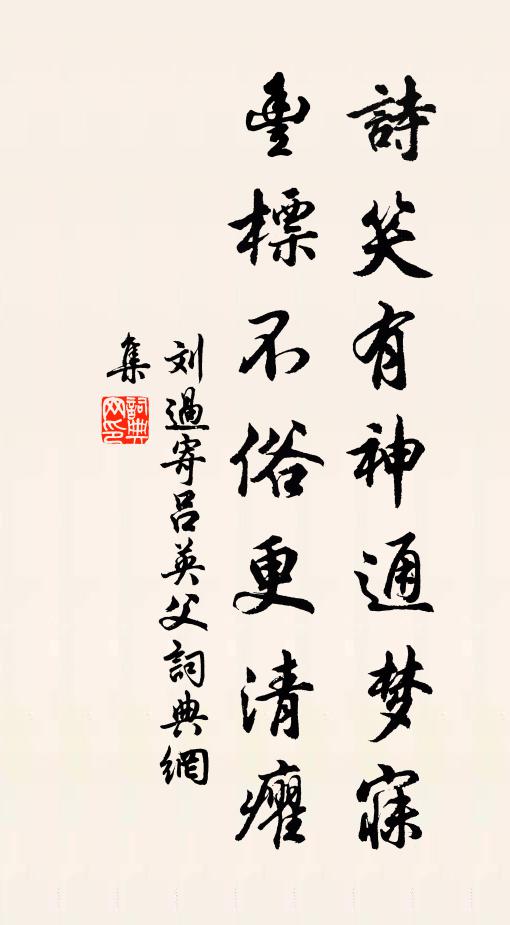 詩笑有神通梦寐
豊標不俗更清癯
刘過寄吕英父詞典網
集
詞典
网印